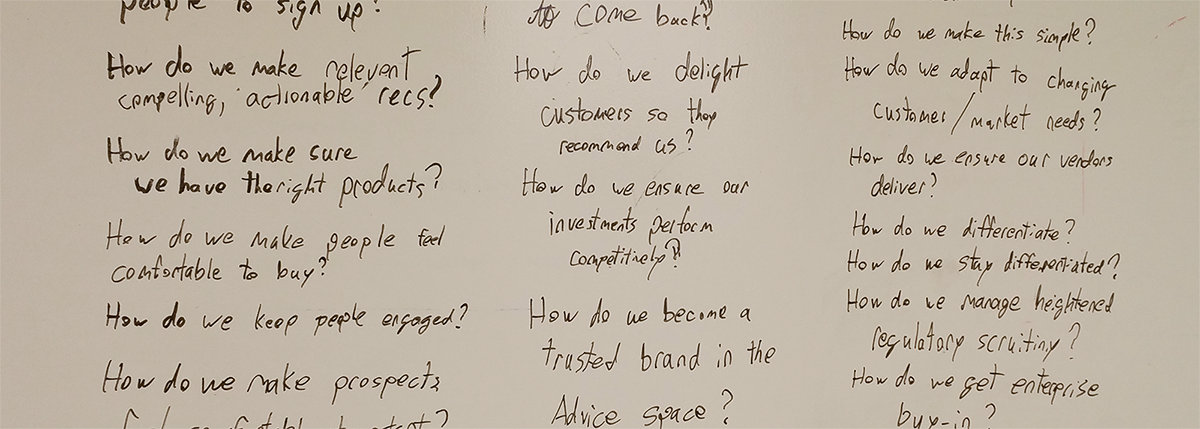 people to sign up?
How do we make relevent
compelling, 'actionable' recs?
How do we make sure
we have the right products?
How do we make people feel
comfortable to buy?
How do we keep people engaged?
How do we make prospects
to come back?
How do we delight
customers so they
recommend us?
How do we ensure our
investments perform
competitively?
How do we become a
trusted brand in the
Advice space?
How do we make this simple?
How do we adapt to changing
customer/market needs?
How do we ensure our vendors
deliver?
How do we differentiate?
How do we stay differentiated?
How do we manage heightened
regulatory scruitiny?
How do we get enterprise
buy-in?